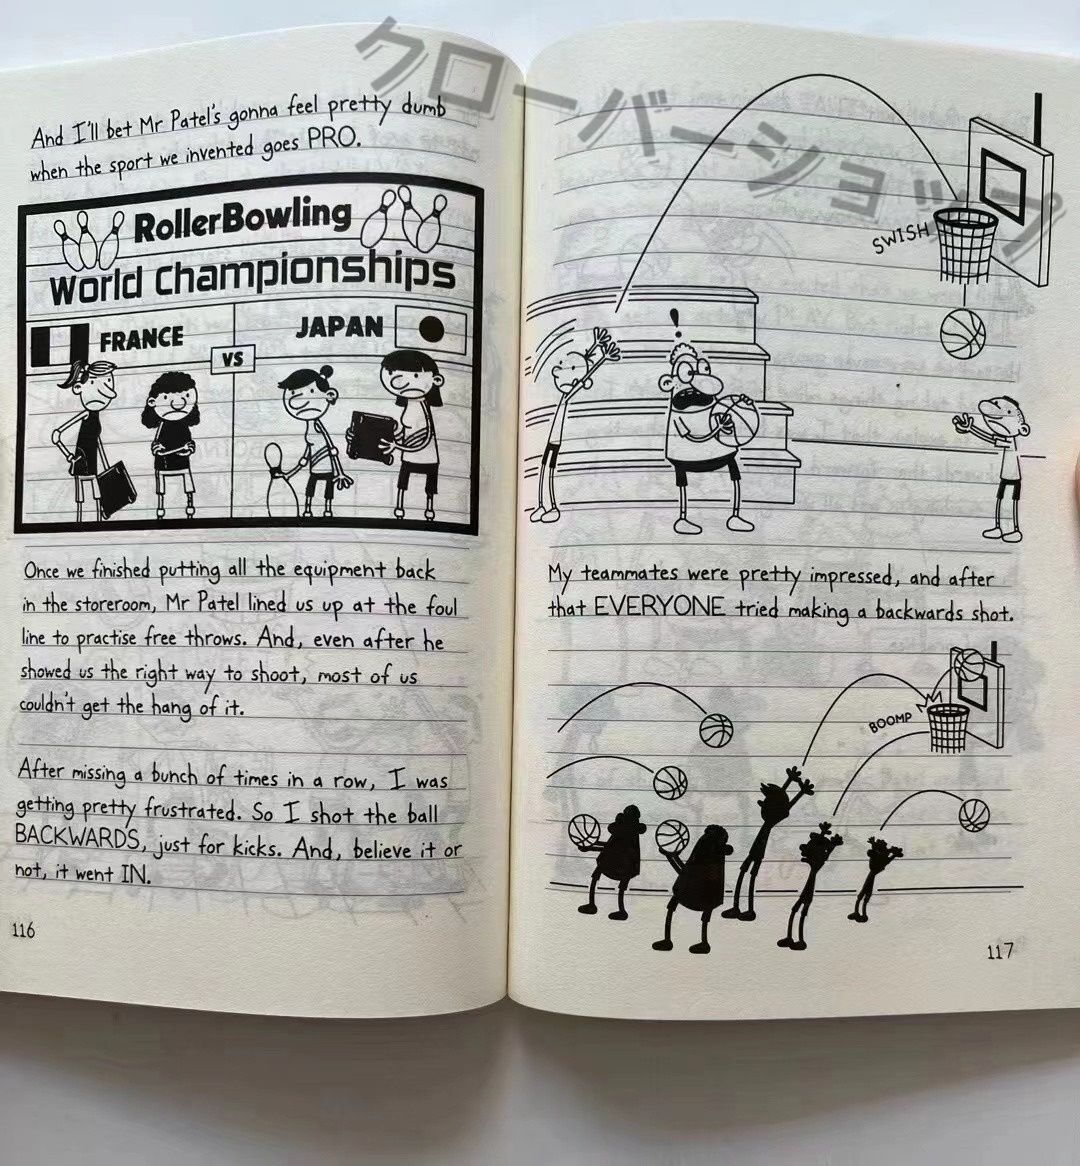 クローバーショップ
And I'll bet Mr Patel's gonna feel pretty dumb
when the sport we invented goes PRO.
RollerBowling
World Championships
FRANCE
VS
JAPAN
Once we finished putting all the equipment back
in the storeroom, Mr Patel lined us up at the foul
line to practise free throws. And, even after he
showed us the right way to shoot, most of us
couldn't get the hang of it.
After missing a bunch of times in a row, I was
getting pretty frustrated. So I shot the ball
BACKWARDS, just for kicks. And, believe it or
not, it went IN.
116
SWISH
!
My teammates were pretty impressed, and after
that EVERYONE tried making a backwards shot.
BOOMP
117